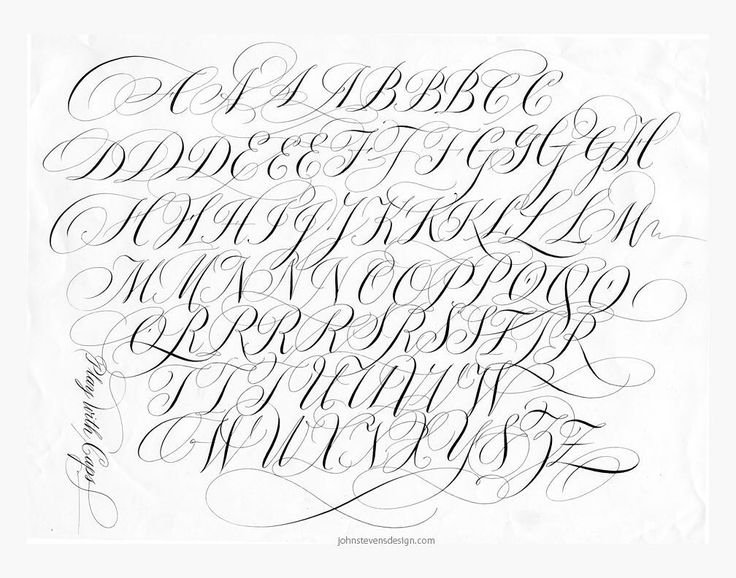 A A A A B B B C C
D D D E E E F F F G G G G H
H H H I J J K K K L L L M
M M N N N N O O P P Q Q O
Q R R R R S R S S T J R
T T T U U U U W
W U X Y X Y S Z Z
Play with Caps
johnstevensdesign.com